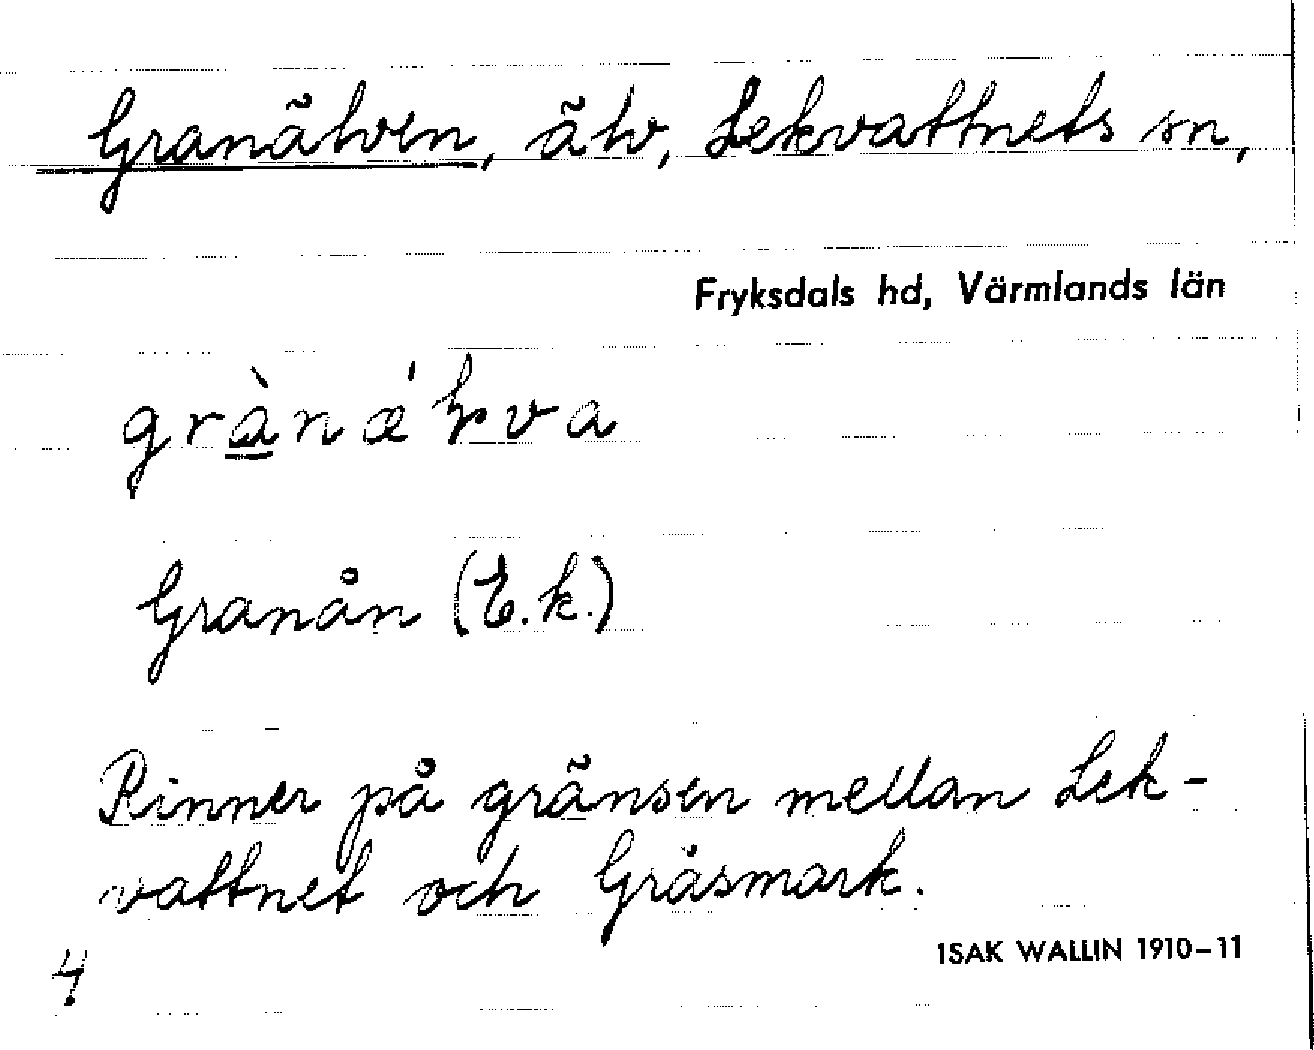 Granälven, älv, Lekvattnets sn,
Fryksdals hd, Värmlands län
Granån (E.k.)
Rinner på gränsen mellan Lek-
vattnet och Gräsmark.
ISAK WALLIN 1910-11
4